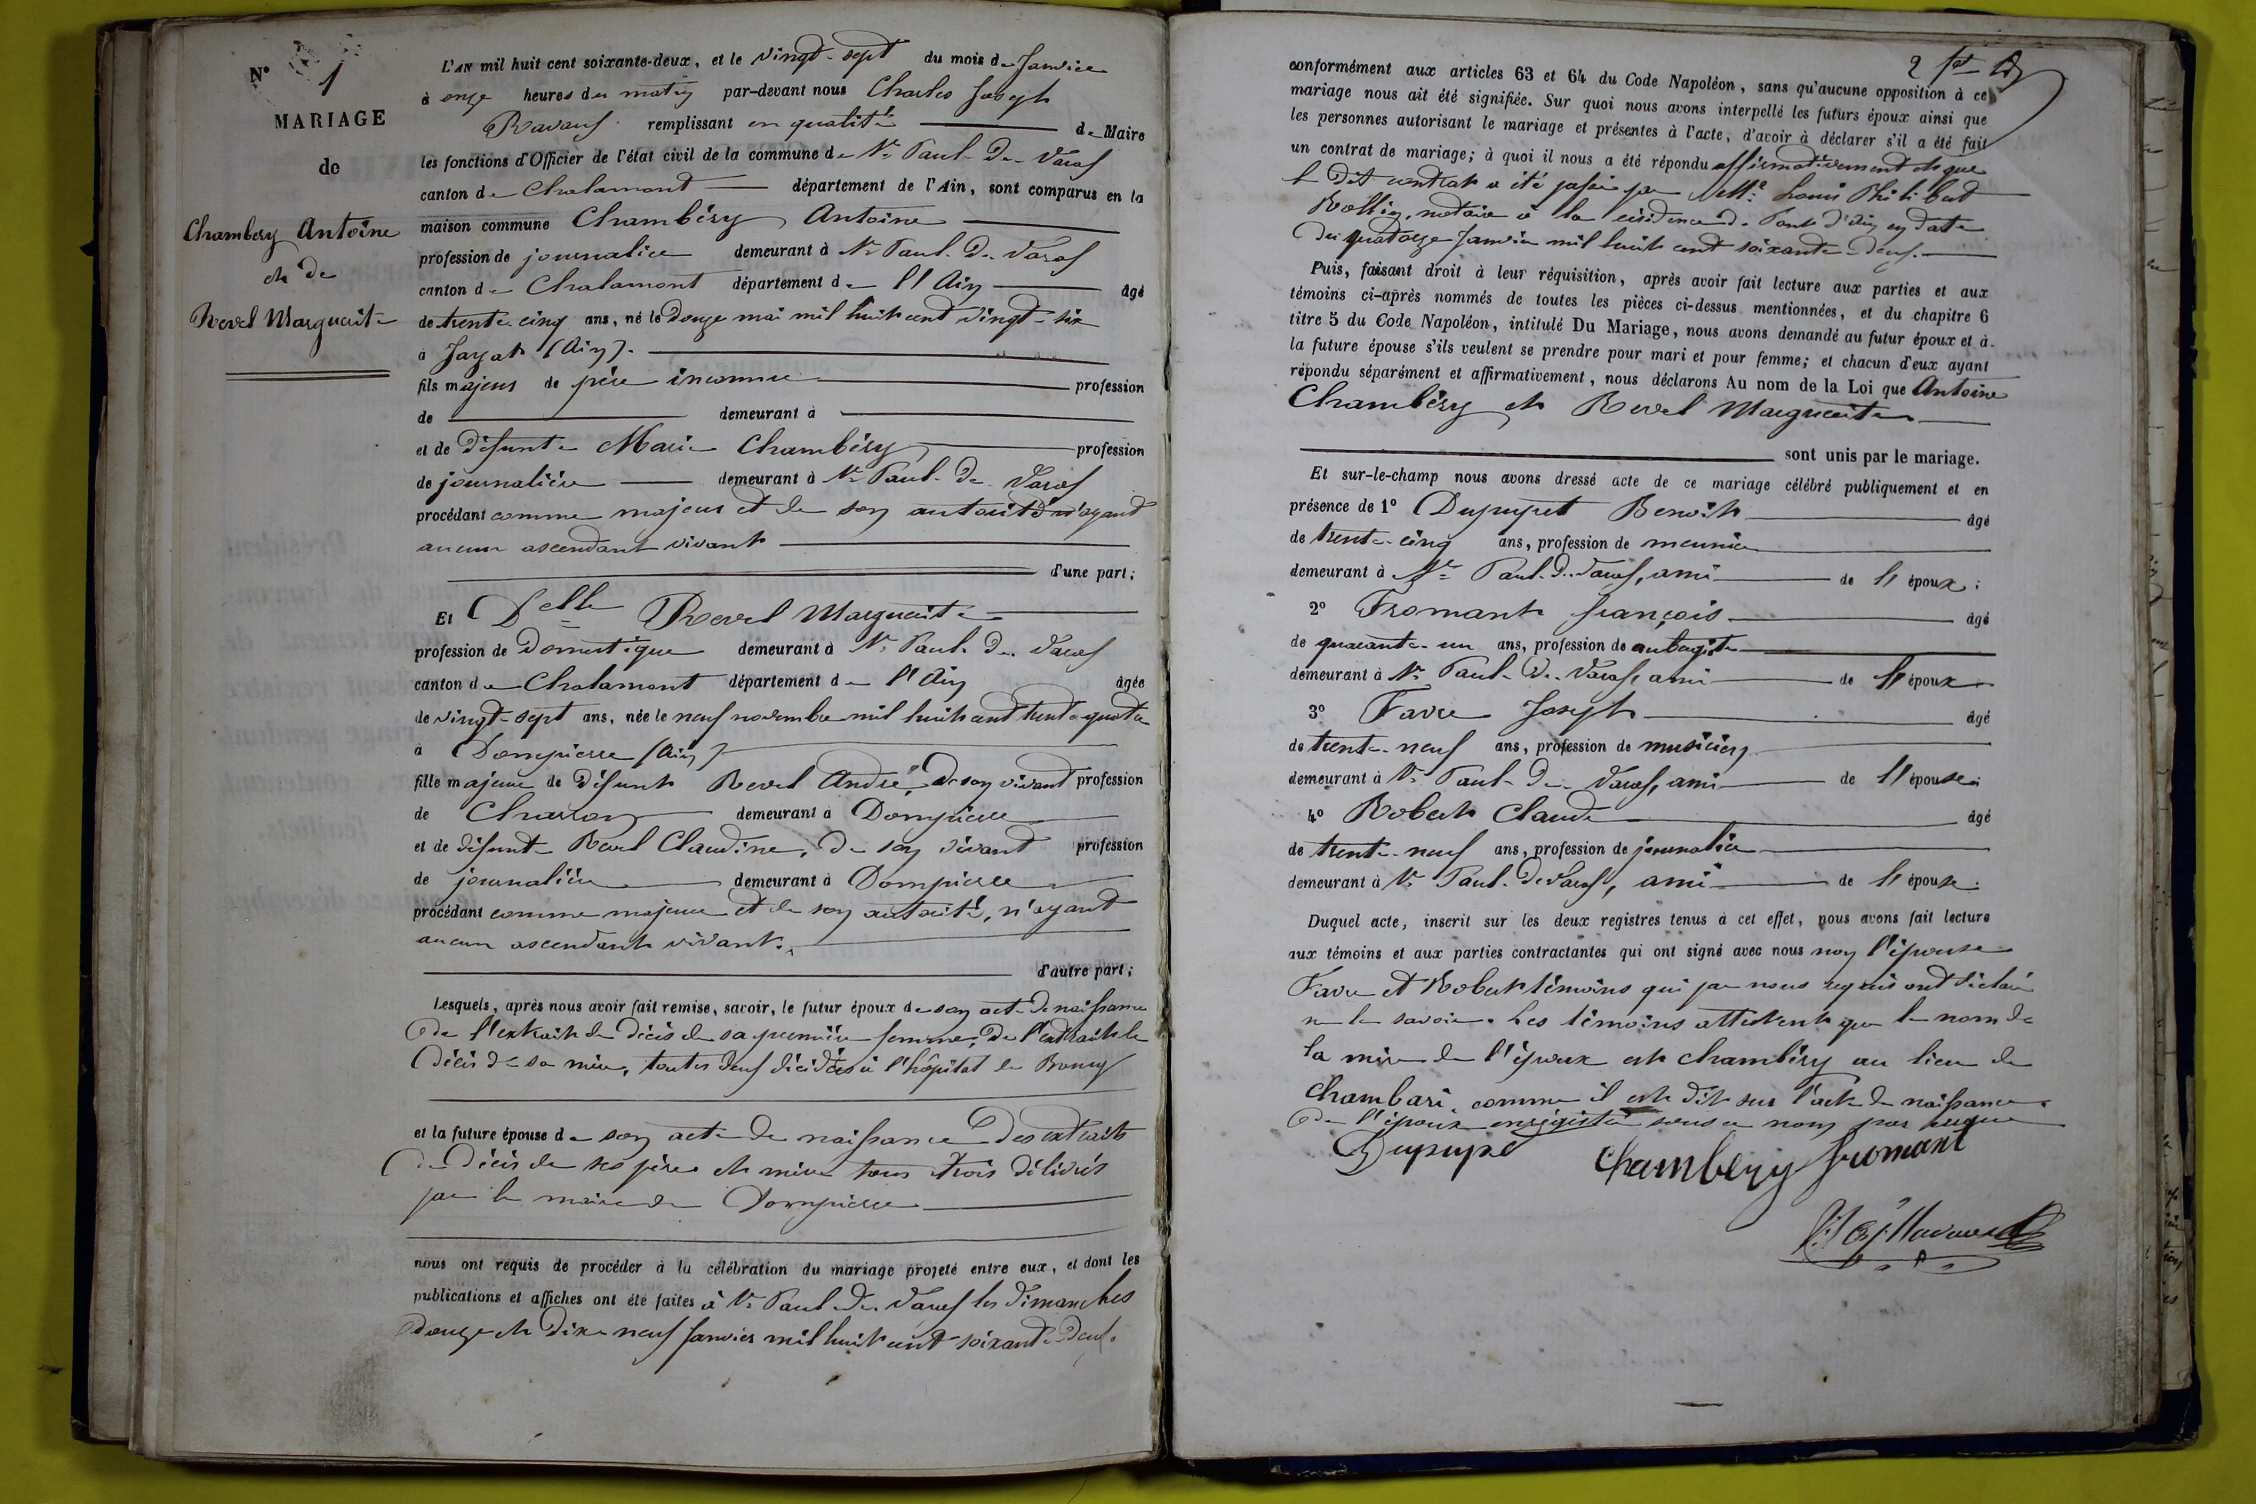 N° 1
MARIAGE
de
Chambery Antoine
et de
Revel Marguerite
L'AN mil huit cent soixante-deux, et le vingt-sept du mois de Janvier
à onze heures du matin par-devant nous Charles Joseph
Ravaux remplissant en qualité de Maire
les fonctions d'Officier de l'état civil de la commune de St Paul-de-Varax
canton de Chalamont département de l'Ain, sont comparus en la
maison commune Chambéry Antoine
profession de journalier demeurant à St Paul-de-Varax
canton de Chalamont département de l'Ain âgé
de trente-cinq ans, né le douze mai mil huit cent vingt-six
à Jayat (Ain).
fils majeur de père inconnu profession
de demeurant à
et de défunte Marie Chambéry profession
de journalière demeurant à St Paul-de-Varax
procédant comme majeur et de son autorité n'ayant
aucun ascendant vivant
d'une part;
Et Delle Revel Marguerite
profession de Domestique demeurant à St Paul-de-Varax
canton de Chalamont département de l'Ain âgée
de vingt-sept ans, née le neuf novembre mil huit cent trente-quatre
à Dompierre (Ain)
fille majeure de défunt Revel André, de son vivant profession
de Charron demeurant à Dompierre
et de défunte Revel Claudine, de son vivant profession
de journalière demeurant à Dompierre
procédant comme majeure et de son autorité, n'ayant
aucun ascendant vivant.
d'autre part;
Lesquels, après nous avoir fait remise, savoir, le futur époux de son acte de naissance
de l'extrait de décès de sa première femme, de l'extrait de
décès de sa mère, toutes deux décédées à l'hôpital de Bourg
et la future épouse de son acte de naissance des extraits
de décès de ses père et mère tous trois délivrés
par le maire de Dompierre
nous ont requis de procéder à la célébration du mariage projeté entre eux, et dont les
publications et affiches ont été faites à St Paul-de-Varax les dimanches
douze et dix-neuf Janvier mil huit cent soixante-deux.
conformément aux articles 63 et 64 du Code Napoléon, sans qu'aucune opposition à ce
mariage nous ait été signifiée. Sur quoi nous avons interpellé les futurs époux ainsi que
les personnes autorisant le mariage et présentes à l'acte, d'avoir à déclarer s'il a été fait
un contrat de mariage; à quoi il nous a été répondu affirmativement et que
le dit contrat a été passé par Me Louis Philibert
Rollin, notaire à la résidence de Pont d'Ain en date
du quatorze Janvier mil huit cent soixante-deux.
Puis, faisant droit à leur réquisition, après avoir fait lecture aux parties et aux
témoins ci-après nommés de toutes les pièces ci-dessus mentionnées, et du chapitre 6
titre 5 du Code Napoléon, intitulé Du Mariage, nous avons demandé au futur époux et à
la future épouse s'ils veulent se prendre pour mari et pour femme; et chacun d'eux ayant
répondu séparément et affirmativement, nous déclarons Au nom de la Loi que Antoine
Chambéry et Revel Marguerite
sont unis par le mariage.
Et sur-le-champ nous avons dressé acte de ce mariage célébré publiquement et en
présence de 1° Dupupet Benoit âgé
de trente-cinq ans, profession de meunier
demeurant à St Paul-de-Varax, ami de l'époux;
2° Fromant françois âgé
de quarante-un ans, profession de aubergiste
demeurant à St Paul-de-Varax, ami de l'époux
3° Favre Joseph âgé
de trente-neuf ans, profession de musicien
demeurant à St Paul-de-Varax, ami de l'épouse;
4° Robert Claude âgé
de trente-neuf ans, profession de journalier
demeurant à St Paul-de-Varax, ami de l'épouse.
Duquel acte, inscrit sur les deux registres tenus à cet effet, nous avons fait lecture
aux témoins et aux parties contractantes qui ont signé avec nous non l'épouse
Favre et Robert témoins qui par nous requis ont déclaré
ne le savoir. Les témoins attestent que le nom de
la mère de l'époux est Chambéry au lieu de
Chambari, comme il est dit sur l'acte de naissance
de l'époux enregistré sous ce nom par erreur
Dupupet Chambery fromant